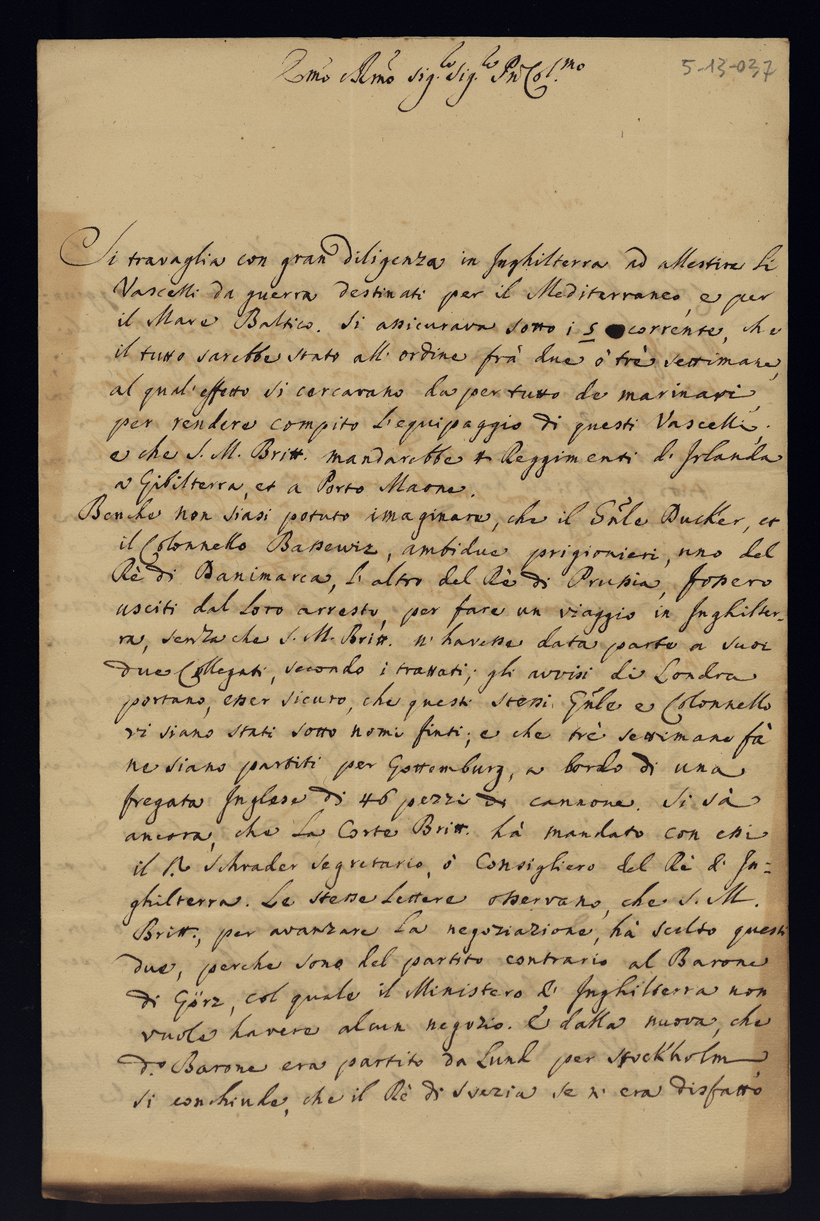 5-13-037
Illmo Rmo Sig.re Sig.re Pn Col.mo
Si travaglia con gran diligenza in Inghilterra ad allestire li
Vascelli da guerra destinati per il Mediterraneo, e per
il Mare Baltico. Si assicurava sotto i 5 corrente, che
il tutto sarebbe stato all' ordine frà due ò trè settimane,
al qual' effetto si cercavano da per tutto de marinari,
per rendere compito l'equipaggio di questi Vascelli.
e che S. M. Britt. mandarebbe 4 Reggimenti d' Irlanda
a Gibilterra, et a Porto Maone.
Benche non siasi potuto imaginare, che il Gñle Ducker, et
il Colonnello Bassewiz, ambidue prigionieri, uno del
Rè di Danimarca, l' altro del Rè di Prussia, fossero
usciti dal loro arresto, per fare un viaggio in Inghilter-
ra, senza che S. M. Britt. n' havesse data parte a suoi
due Collegati, secondo i trattati; gli avvisi di Londra
portano, esser sicuro, che questi stessi Gñle e Colonnello
vi siano stati sotto nomi finti; e che trè settimane fà
ne siano partiti per Gottemburg, a bordo di una
fregata Inglese di 46 pezzi di cannone. Si sà
ancora, che la Corte Britt. hà mandato con essi
il Schrader Segretario, ò Consigliero del Rè d' In=
ghilterra. Le stesse lettere osservano, che S. M.
Britt., per avanzare la negoziazione, hà scelto questi
due, perche sono del partito contrario al Barone
di Görz, col quale il Ministero d' Inghilterra non
vuole havere alcun negozio. E dalla nuova, che
d.o Barone era partito da Lund per Stockholm
si conchiude, che il Rè di Svezia se n' era disfatto